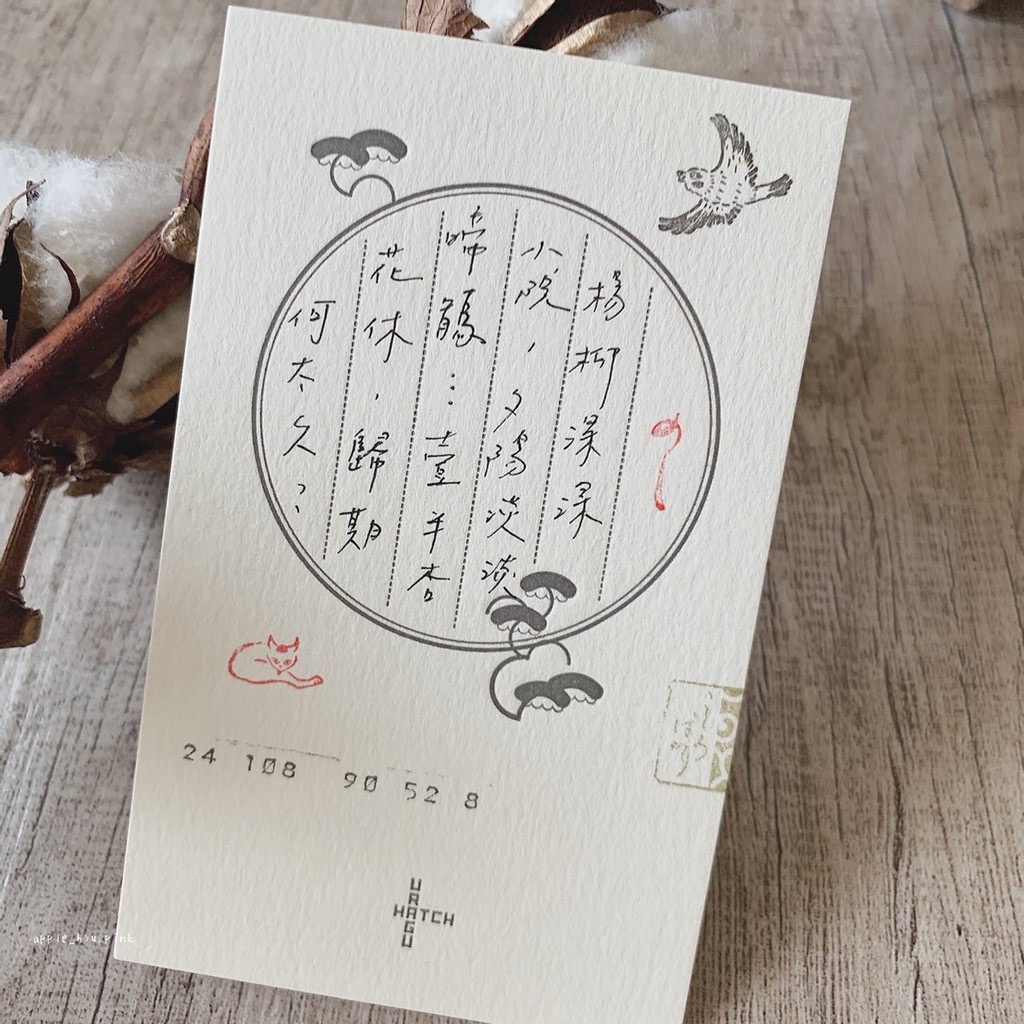 楊柳深深
小院，夕陽淡淡
啼鵑…壹半杏
花休，歸期
何太久？
24 108 90 52 8
URAGU
HATCH
apple_hsu.pink